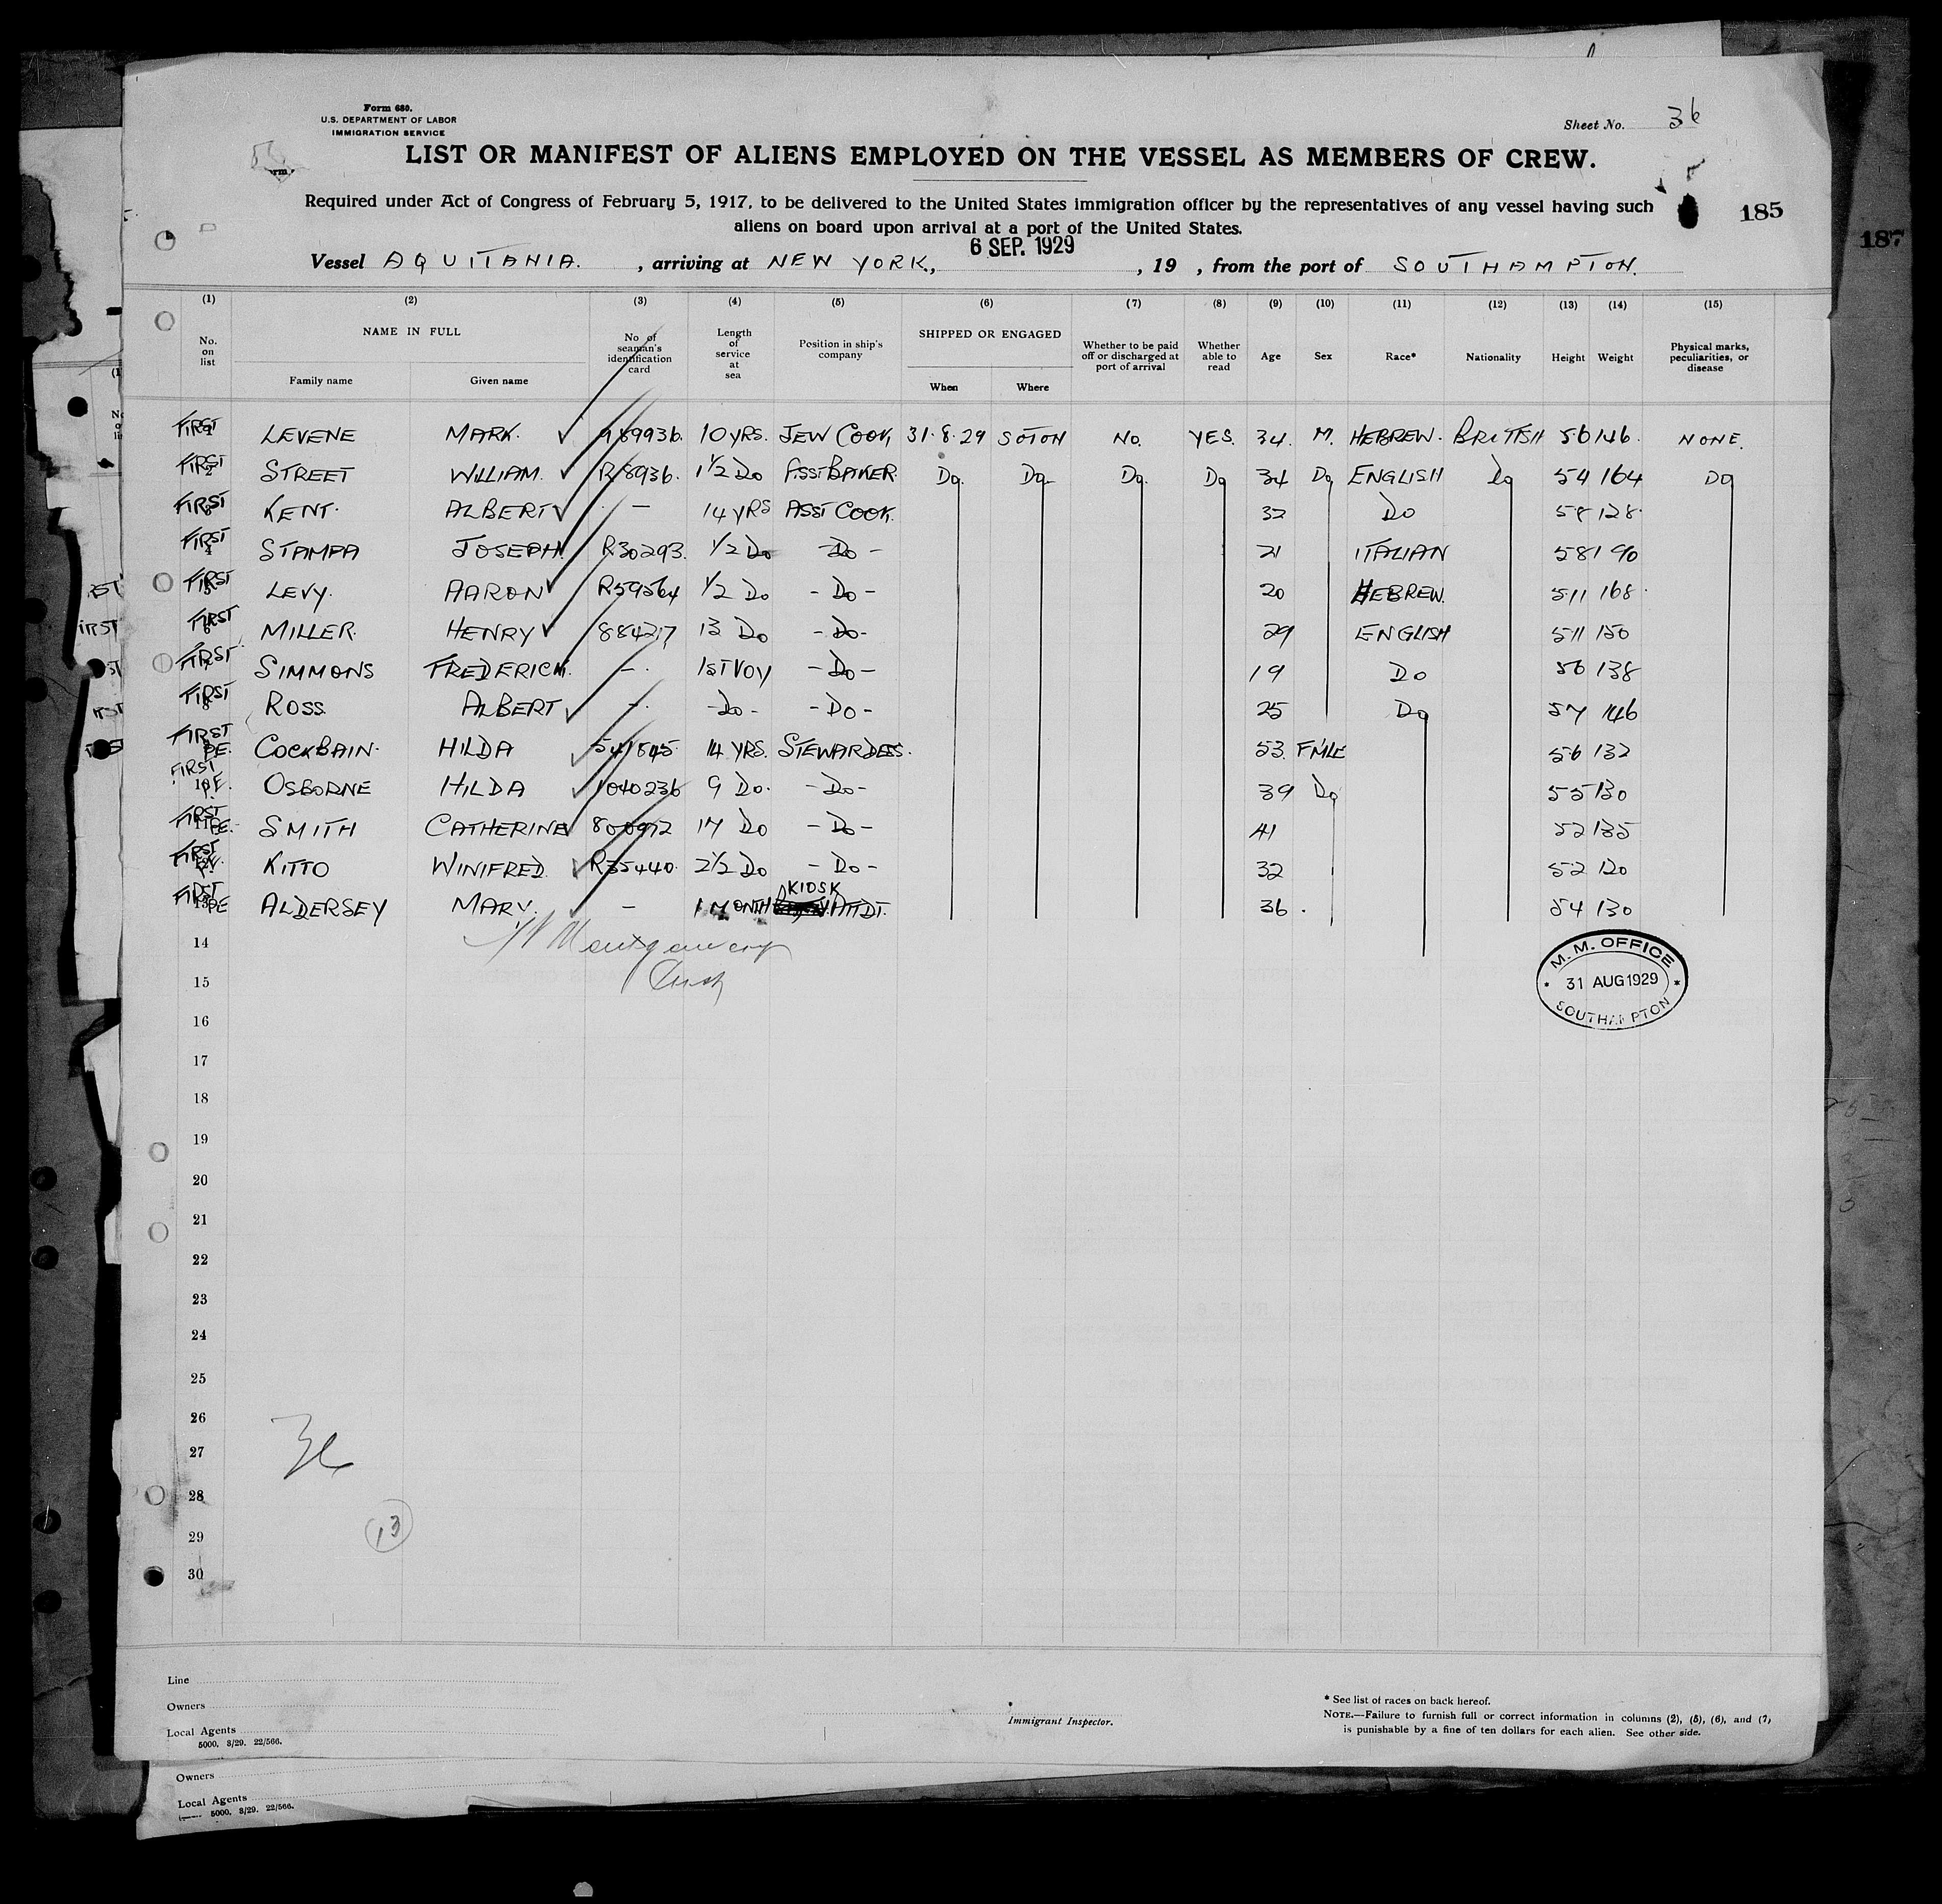 Form 680.
U.S. DEPARTMENT OF LABOR
IMMIGRATION SERVICE
Sheet No. 36
LIST OR MANIFEST OF ALIENS EMPLOYED ON THE VESSEL AS MEMBERS OF CREW.
Required under Act of Congress of February 5, 1917, to be delivered to the United States immigration officer by the representatives of any vessel having such
aliens on board upon arrival at a port of the United States.
185
187
6 SEP. 1929
Vessel AQUITANIA. , arriving at NEW YORK, , 19 , from the port of SOUTHAMPTON.
(1) (2) (3) (4) (5) (6) (7) (8) (9) (10) (11) (12) (13) (14) (15)
No. on list NAME IN FULL Family name Given name No. of seaman's identification card Length of service at sea Position in ship's company SHIPPED OR ENGAGED When Where Whether to be paid off or discharged at port of arrival Whether able to read Age Sex Race* Nationality Height Weight Physical marks, peculiarities, or disease
FIRST LEVENE MARK. 989936. 10 YRS. JEW COOK, 31.8.29 SOTON NO. YES. 34. M. HEBREW. BRITISH 56 146. NONE.
FIRST 2 STREET WILLIAM. R18936. 1 1/2 DO ASST BAKER DO. DO DO. DO 34 DO ENGLISH do 54 164 DO
FIRST KENT. ALBERT — 14 YRS ASST COOK. 32 DO 58 128.
FIRST 4 STAMPA JOSEPH R30293. 1/2 DO -DO- 21 ITALIAN 581 90
FIRST LEVY. AARON R59564 1/2 DO -DO- 20 HEBREW. 511 168.
FIRST 6 MILLER. HENRY 884217 13 DO -DO- 29 ENGLISH 511 150
FIRST SIMMONS FREDERICK. — 1ST VOY -DO- 19 DO 56 138
FIRST 8 ROSS ALBERT — -DO- -DO- 25 DO 57 146
FIRST PE. COCKBAIN. HILDA 541845 14 YRS. STEWARDESS. 53. FMLE 56 132
FIRST 10 OSBORNE HILDA 1040236 9 DO. -DO- 39 DO 55 130
FIRST PE. SMITH CATHERINE 800972 17 DO -DO- 41 52 135
FIRST KITTO WINIFRED. R35440. 2 1/2 DO -DO- 32 52 120
FIRST PE ALDERSEY MARY. — 1 MONTH KIOSK ATTDT. 36. 54 130
14
Montgomery
15
M. M. OFFICE
* 31 AUG 1929 *
SOUTHAMPTON
16
17
18
19
20
21
22
23
24
25
26
27
36
28
29
13
30
Line
Owners
Local Agents
5000. 8/29. 22/566.
Immigrant Inspector.
* See list of races on back hereof.
NOTE.—Failure to furnish full or correct information in columns (2), (5), (6), and (7)
is punishable by a fine of ten dollars for each alien. See other side.
Owners
Local Agents
5000. 8/29. 22/566.